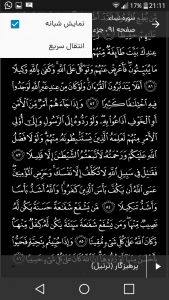 21:11
17%
سوره نساء
صفحه ۹۱، جزء
نمایش شبانه
انتقال سریع
عِندَكَ بَيَّتَ طَآئِفَةٌ مِّنْهُمْ
مَا يُبَيِّتُونَ فَأَعْرِضْ عَنْهُمْ وَتَوَكَّلْ عَلَى ٱللَّهِ وَكَفَىٰ بِٱللَّهِ وَكِيلًا
٨١ أَفَلَا يَتَدَبَّرُونَ ٱلْقُرْءَانَ وَلَوْ كَانَ مِنْ عِندِ غَيْرِ ٱللَّهِ لَوَجَدُوا۟
فِيهِ ٱخْتِلَـٰفًا كَثِيرًا ٨٢ وَإِذَا جَآءَهُمْ أَمْرٌ مِّنَ ٱلْأَمْنِ
أَوِ ٱلْخَوْفِ أَذَاعُوا۟ بِهِۦ وَلَوْ رَدُّوهُ إِلَى ٱلرَّسُولِ وَإِلَىٰٓ أُو۟لِى
ٱلْأَمْرِ مِنْهُمْ لَعَلِمَهُ ٱلَّذِينَ يَسْتَنۢبِطُونَهُۥ مِنْهُمْ وَلَوْلَا فَضْلُ
ٱللَّهِ عَلَيْكُمْ وَرَحْمَتُهُۥ لَٱتَّبَعْتُمُ ٱلشَّيْطَـٰنَ إِلَّا قَلِيلًا ٨٣
فَقَـٰتِلْ فِى سَبِيلِ ٱللَّهِ لَا تُكَلَّفُ إِلَّا نَفْسَكَ وَحَرِّضِ ٱلْمُؤْمِنِينَ
عَسَى ٱللَّهُ أَن يَكُفَّ بَأْسَ ٱلَّذِينَ كَفَرُوا۟ وَٱللَّهُ أَشَدُّ بَأْسًا
وَأَشَدُّ تَنكِيلًا ٨٤ مَّن يَشْفَعْ شَفَـٰعَةً حَسَنَةً يَكُن لَّهُۥ
نَصِيبٌ مِّنْهَا وَمَن يَشْفَعْ شَفَـٰعَةً سَيِّئَةً يَكُن لَّهُۥ كِفْلٌ مِّنْهَا
وَكَانَ ٱللَّهُ عَلَىٰ كُلِّ شَىْءٍ مُّقِيتًا ٨٥ وَإِذَا حُيِّيتُم بِتَحِيَّةٍ فَحَيُّوا۟
پرهیزگار (ترتیل)